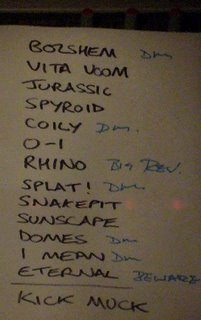 BOLSHEM Dm
VITA VOOM
JURASSIC
SPYROID
COILY Dm.
O-1
RHINO BIG REV.
SPLAT! Dm
SNAKEPIT
SUNSCAPE
DOMES Dm
I MEAN Dm
ETERNAL BEWARE
KICK MUCK